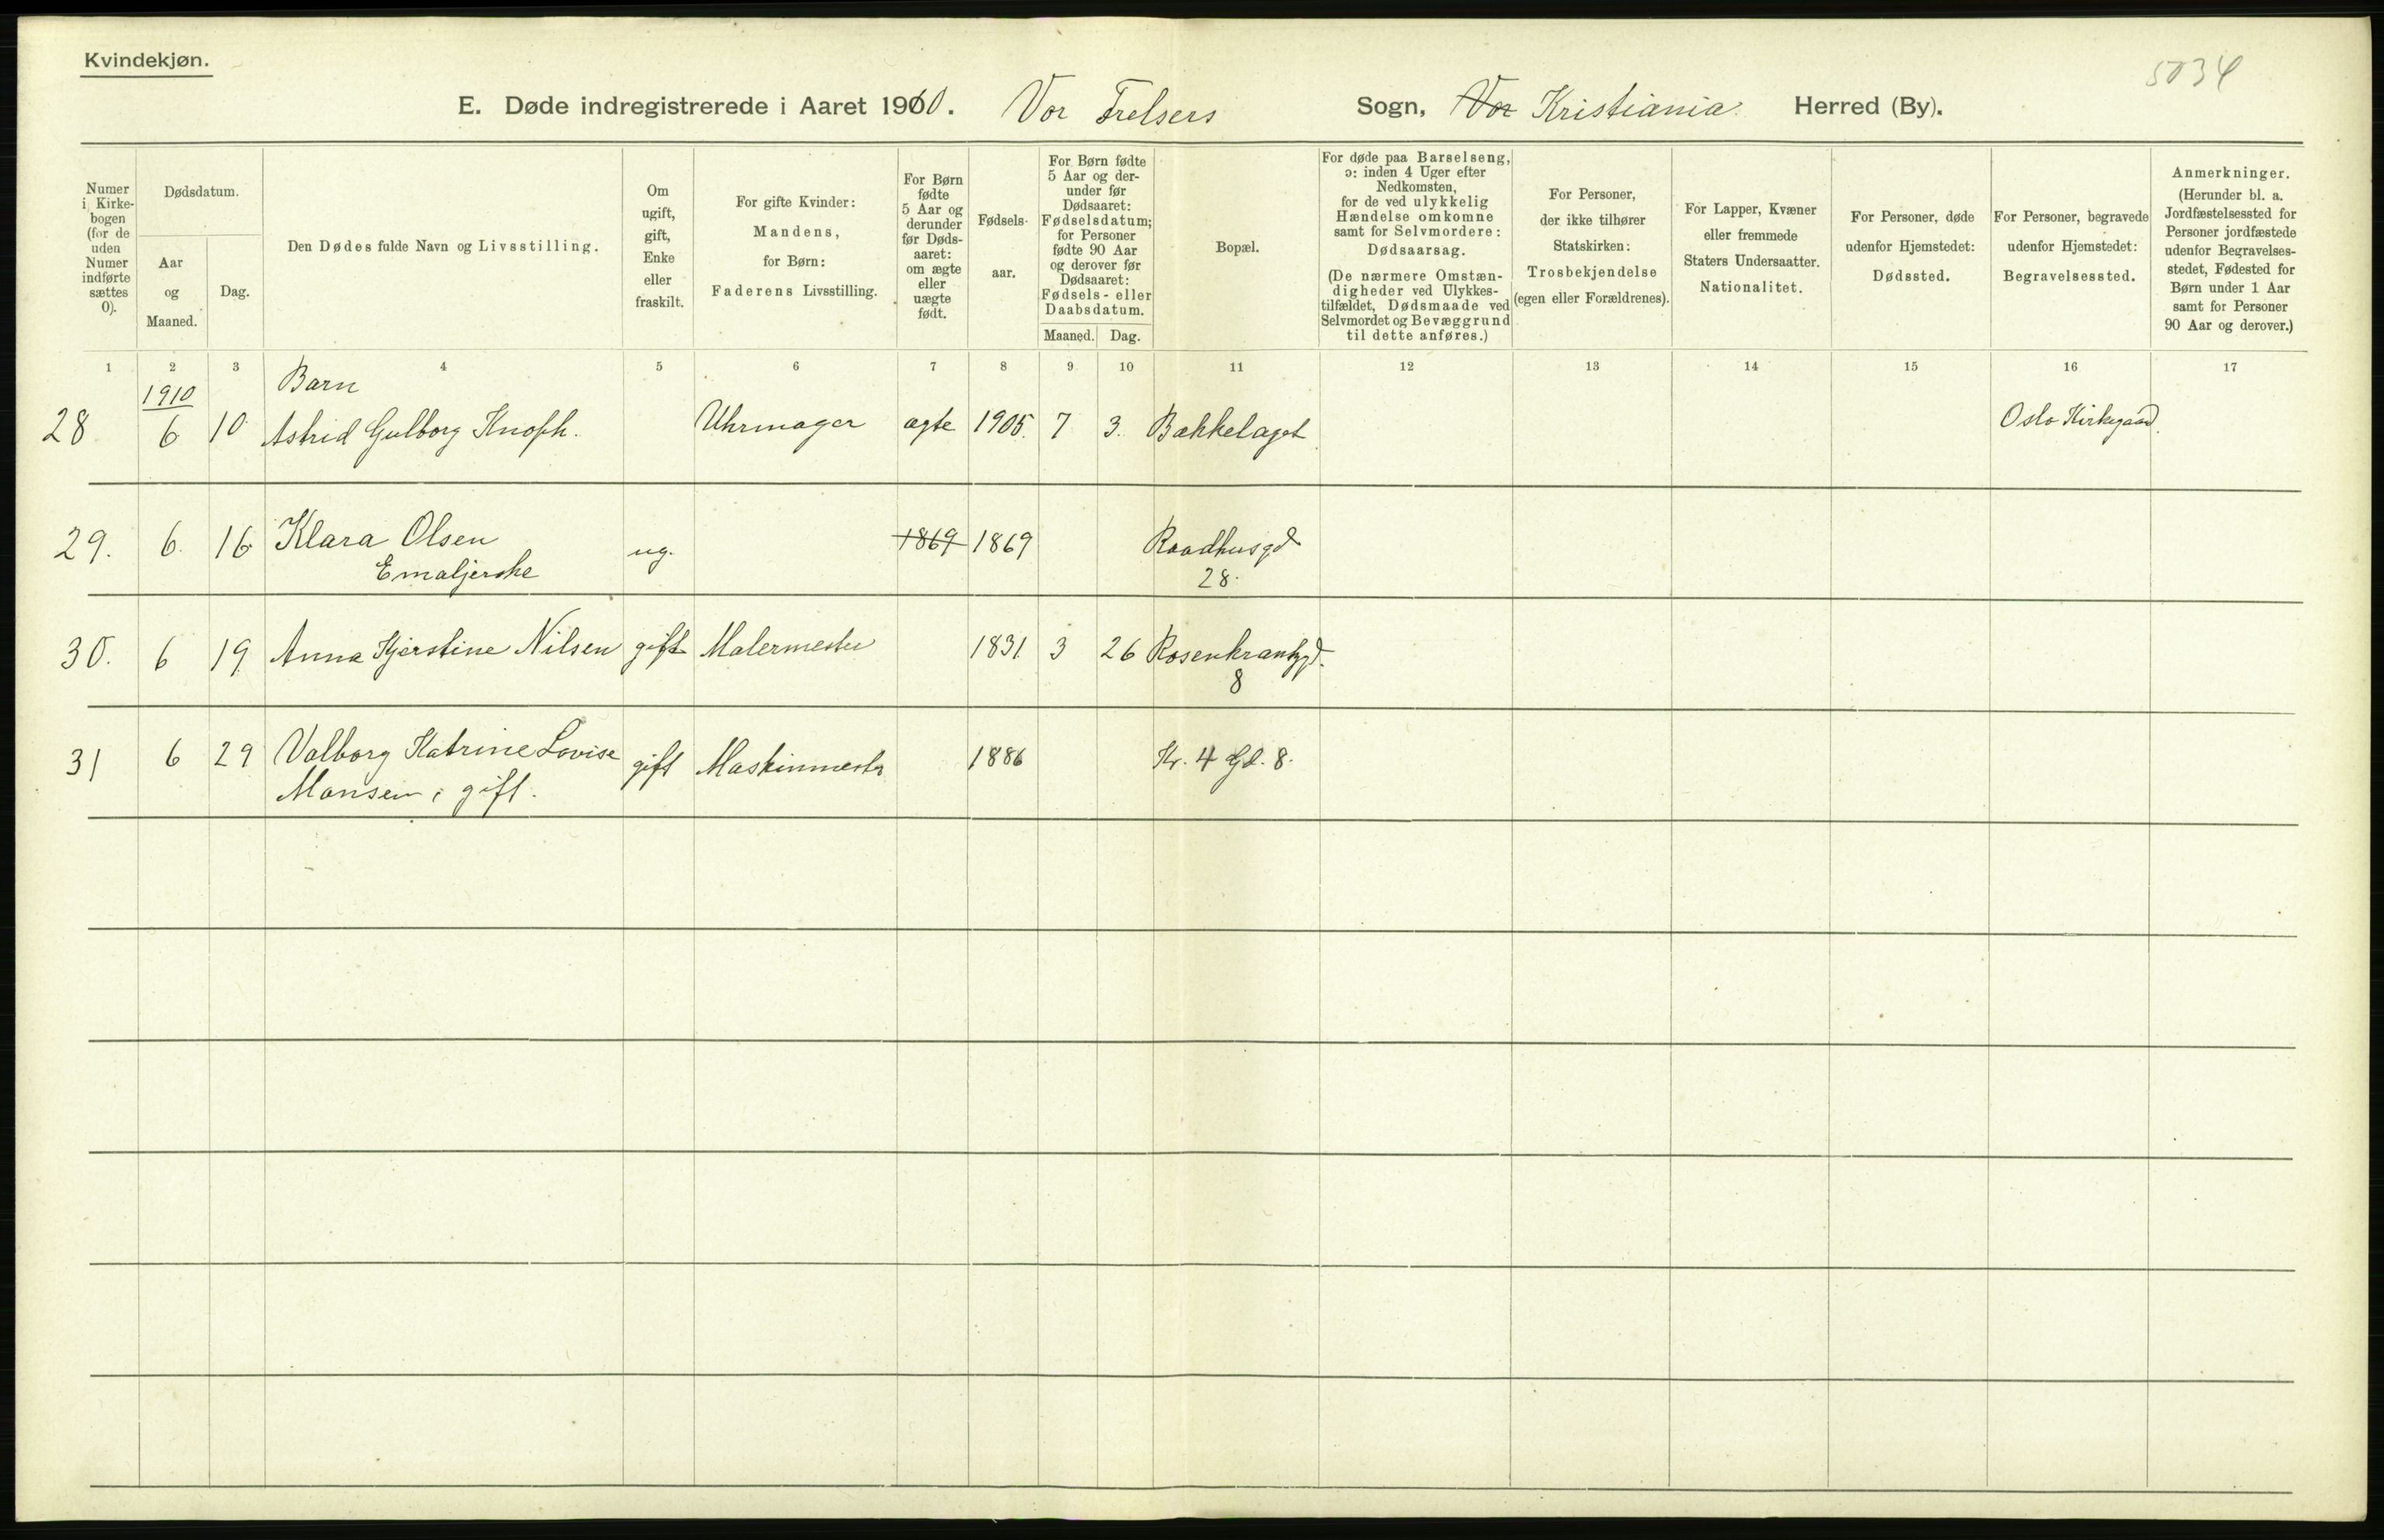 Kvindekjøn.
5034
E. Døde indregistrerede i Aaret 1910. Vor Frelsers Sogn, Vor Kristiania Herred (By).
Numer i Kirkebogen (for de uden Numer indførte sættes 0).
Dødsdatum.
Aar og Maaned.
Dag.
Den Dødes fulde Navn og Livsstilling.
Om ugift, gift, Enke eller fraskilt.
For gifte Kvinder: Mandens, for Børn: Faderens Livsstilling.
For Børn fødte 5 Aar og derunder før Dødsaaret: om ægte eller uægte født.
Fødselsaar.
For Børn fødte 5 Aar og derunder før Dødsaaret: Fødselsdatum; for Personer fødte 90 Aar og derover før Dødsaaret: Fødsels- eller Daabsdatum.
Maaned. Dag.
Bopæl.
For døde paa Barselseng, ɔ: inden 4 Uger efter Nedkomsten, for de ved ulykkelig Hændelse omkomne samt for Selvmordere: Dødsaarsag.
(De nærmere Omstændigheder ved Ulykkestilfældet, Dødsmaade ved Selvmordet og Bevæggrund til dette anføres.)
For Personer, der ikke tilhører Statskirken: Trosbekjendelse (egen eller Forældrenes).
For Lapper, Kvæner eller fremmede Staters Undersaatter. Nationalitet.
For Personer, døde udenfor Hjemstedet: Dødssted.
For Personer, begravede udenfor Hjemstedet: Begravelsessted.
Anmerkninger. (Herunder bl. a. Jordfæstelsessted for Personer jordfæstede udenfor Begravelsesstedet, Fødested for Børn under 1 Aar samt for Personer 90 Aar og derover.)
1 2 3 4 5 6 7 8 9 10 11 12 13 14 15 16 17
1910 Barn
28 6 10 Astrid Gulborg Knoph. Uhrmager ægte 1905. 7 3. Bækkelaget Oslo Kirkegaard.
29. 6. 16 Klara Olsen ug. 1869 1869 Raadhusgd
Emaljerske 28.
30. 6 19 Anna Kjerstine Nilsen gift Malermester 1831 3 26 Rosenkrantzgd.
8
31 6 29 Valborg Katrine Lovise gift Maskinmester 1886 Kr. 4 Gd. 8.
Monsen, gift.